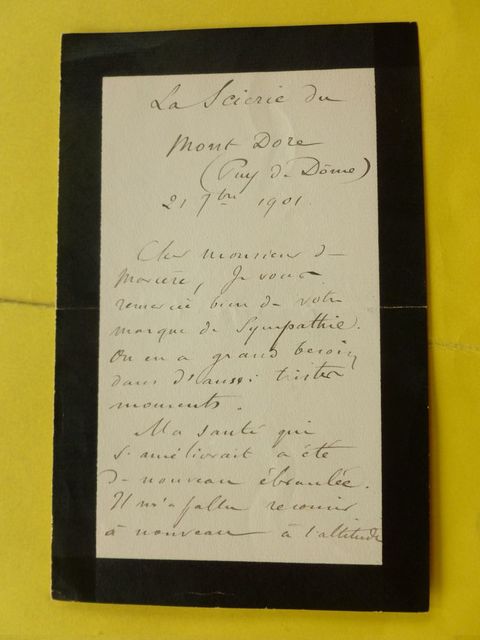 La Scierie du
Mont Dore
(Puy de Dôme)
21 7bre 1901.
Cher monsieur de
je vous
remercie bien de votre
marque de Sympathie.
On en a grand besoin
dans d'aussi tristes
moments.
Ma santé qui
s'améliorait a été
de nouveau ébranlée.
Il m'a fallu recourir
à nouveau à l'altitude